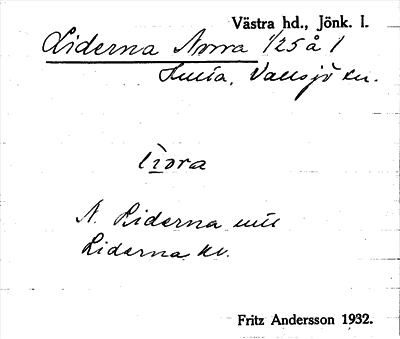 Västra hd., Jönk. l.
Liderna Norra 1/25 å 1
Vallsjö kn.
N. Liderna
Liderna kv.
Fritz Andersson 1932.